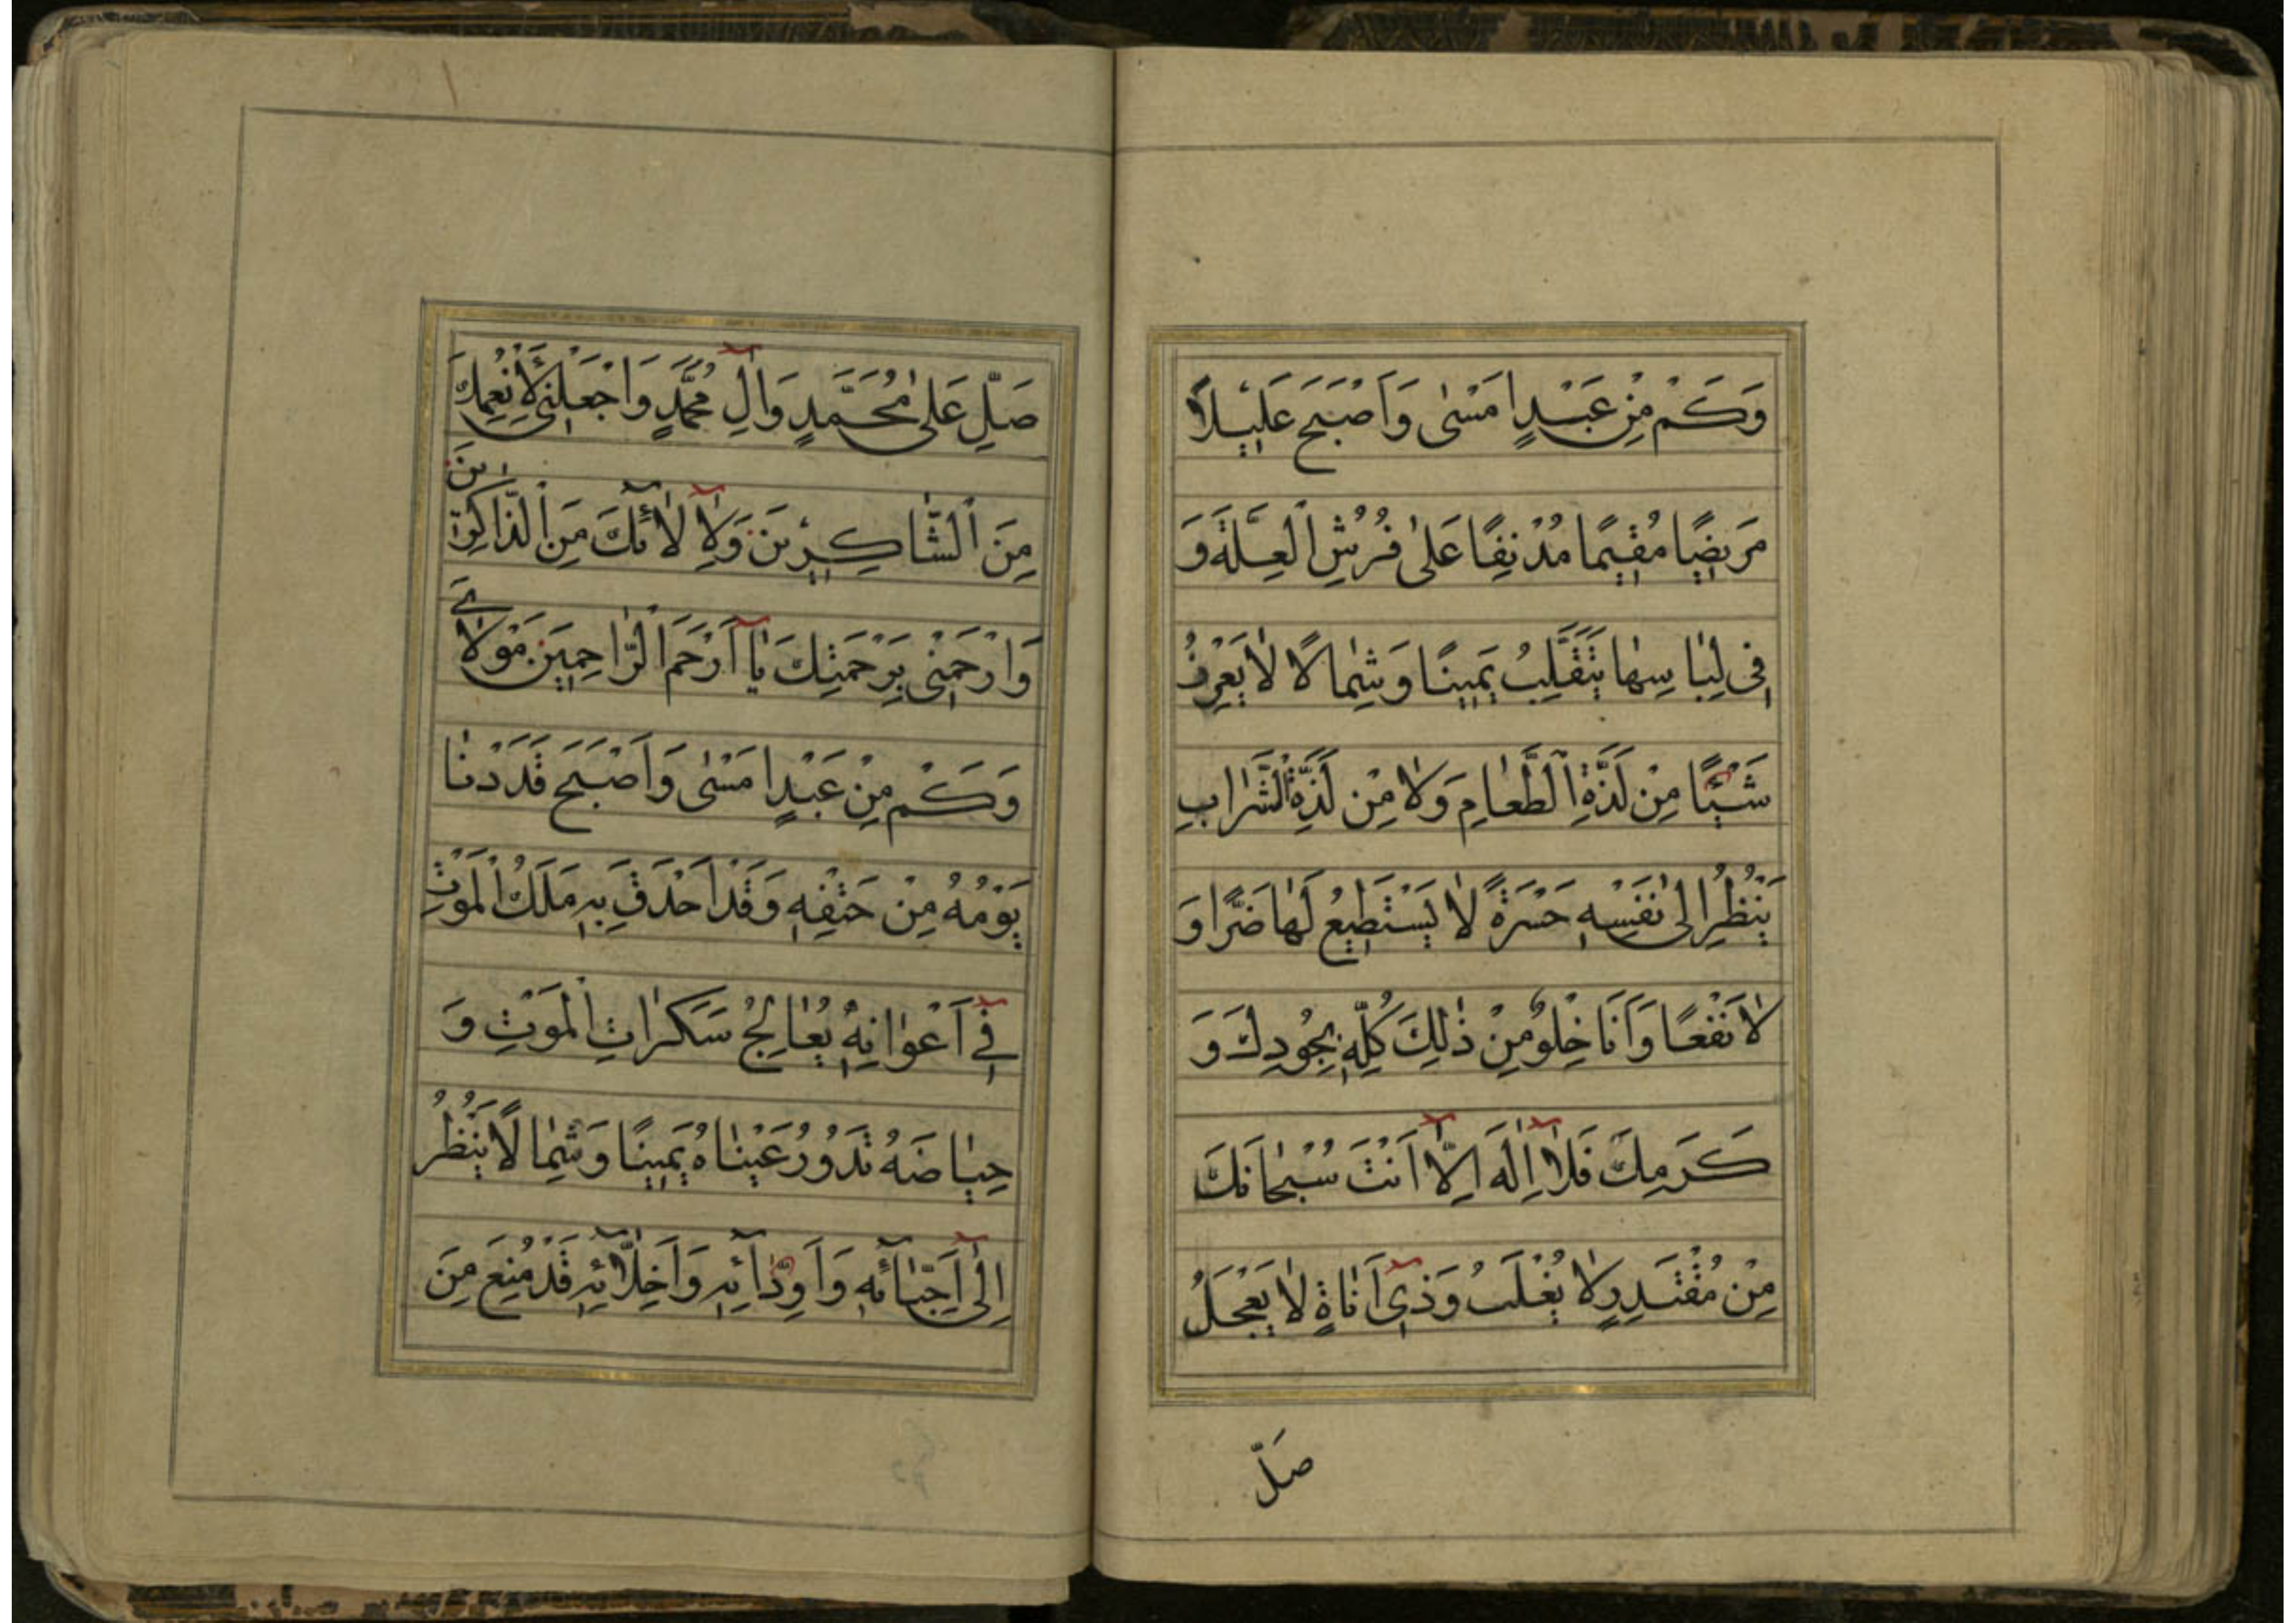 وَكَمْ مِنْ عَبْدٍ اَمْسٰى وَاَصْبَحَ عَلِيْلًا
مَرِيضًا مُقِيمًا مُدْنِفًا عَلٰى فُرُشِ الْعِلَّةِ وَ
فِى لِبَاسِهٰا يَتَقَلَّبُ يَمِينًا وَشِمٰالًا لٰا يَعْرِفُ
شَيْئًا مِنْ لَذَّةِ الطَّعٰامِ وَلٰا مِنْ لَذَّةِ الشَّرٰابِ
يَنْظُرُ اِلىٰ نَفْسِهِ حَسْرَةً لٰا يَسْتَطِيعُ لَهٰا ضَرًّا وَ
لٰا نَفْعًا وَاَنَا خِلْوٌ مِنْ ذٰلِكَ كُلِّهِ بِجُودِكَ وَ
كَرَمِكَ فَلٰا اِلٰهَ اِلّٰا اَنْتَ سُبْحٰانَكَ
مِنْ مُقْتَدِرٍ لٰا يُغْلَبُ وَذِى اَنٰاةٍ لٰا يَعْجَلُ
صَلِّ
صَلِّ عَلٰى مُحَمَّدٍ وَاٰلِ مُحَمَّدٍ وَاجْعَلْنِى لِاَنْعُمِكَ
مِنَ الشّٰاكِرِيْنَ وَلِاٰلٰائِكَ مِنَ الذّٰاكِرِينَ
وَارْحَمْنِى بِرَحْمَتِكَ يٰا اَرْحَمَ الرّٰاحِمِينَ مَوْلٰاىَ
وَكَمْ مِنْ عَبْدٍ اَمْسٰى وَاَصْبَحَ قَدْ دَنٰا
يَوْمُهُ مِنْ حَتْفِهِ وَقَدْ اَحْدَقَ بِهِ مَلَكُ الْمَوْتِ
فِى اَعْوٰانِهِ يُعٰالِجُ سَكَرٰاتِ الْمَوْتِ وَ
حِيٰاضَهُ تَدُورُ عَيْنٰاهُ يَمِينًا وَشِمٰالًا يَنْظُرُ
اِلٰى اَحِبّٰائِهِ وَاَوِدّٰائِهِ وَاَخِلّٰائِهِ قَدْ مُنِعَ مِنَ